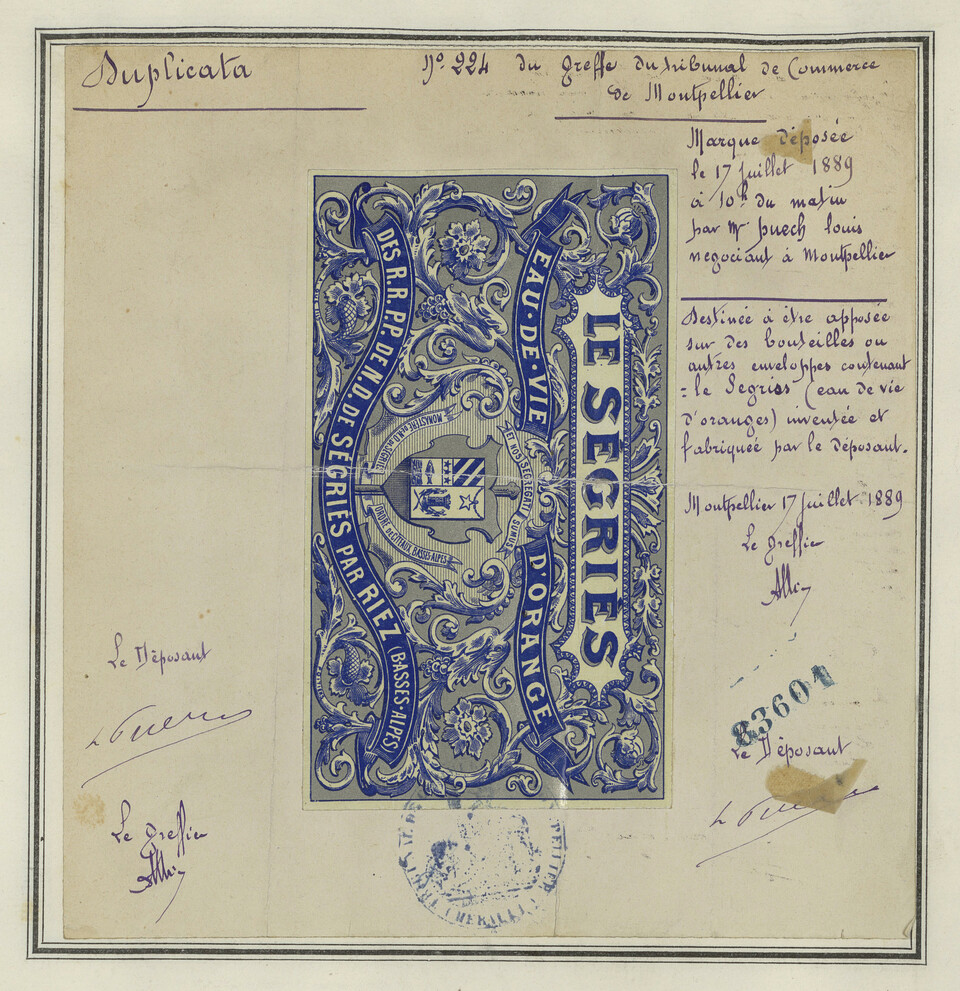 Duplicata
N° 224 du Greffe du tribunal de Commerce
de Montpellier
Marque déposée
le 17 juillet 1889
à 10h du matin
par Mr Puech Louis
negociant à Montpellier
Destinée à être apposée
sur des bouteilles ou
autres enveloppes contenant
= le Segries (eau de vie
d'oranges) inventée et
fabriquée par le déposant.
Montpellier 17 juillet 1889
Le Greffier
83601
Le Déposant
LE SEGRIES
EAU-DE-VIE D'ORANGE
ET NOS SEGREGATI SUMUS
MONASTERE DE N.D. DE SEGRIES
ORDRE DE CITEAUX BASSES-ALPES
DES R.R. PP. DE N.D. DE SEGRIES PAR RIEZ (BASSES-ALPES)
Le Déposant
Le Greffier